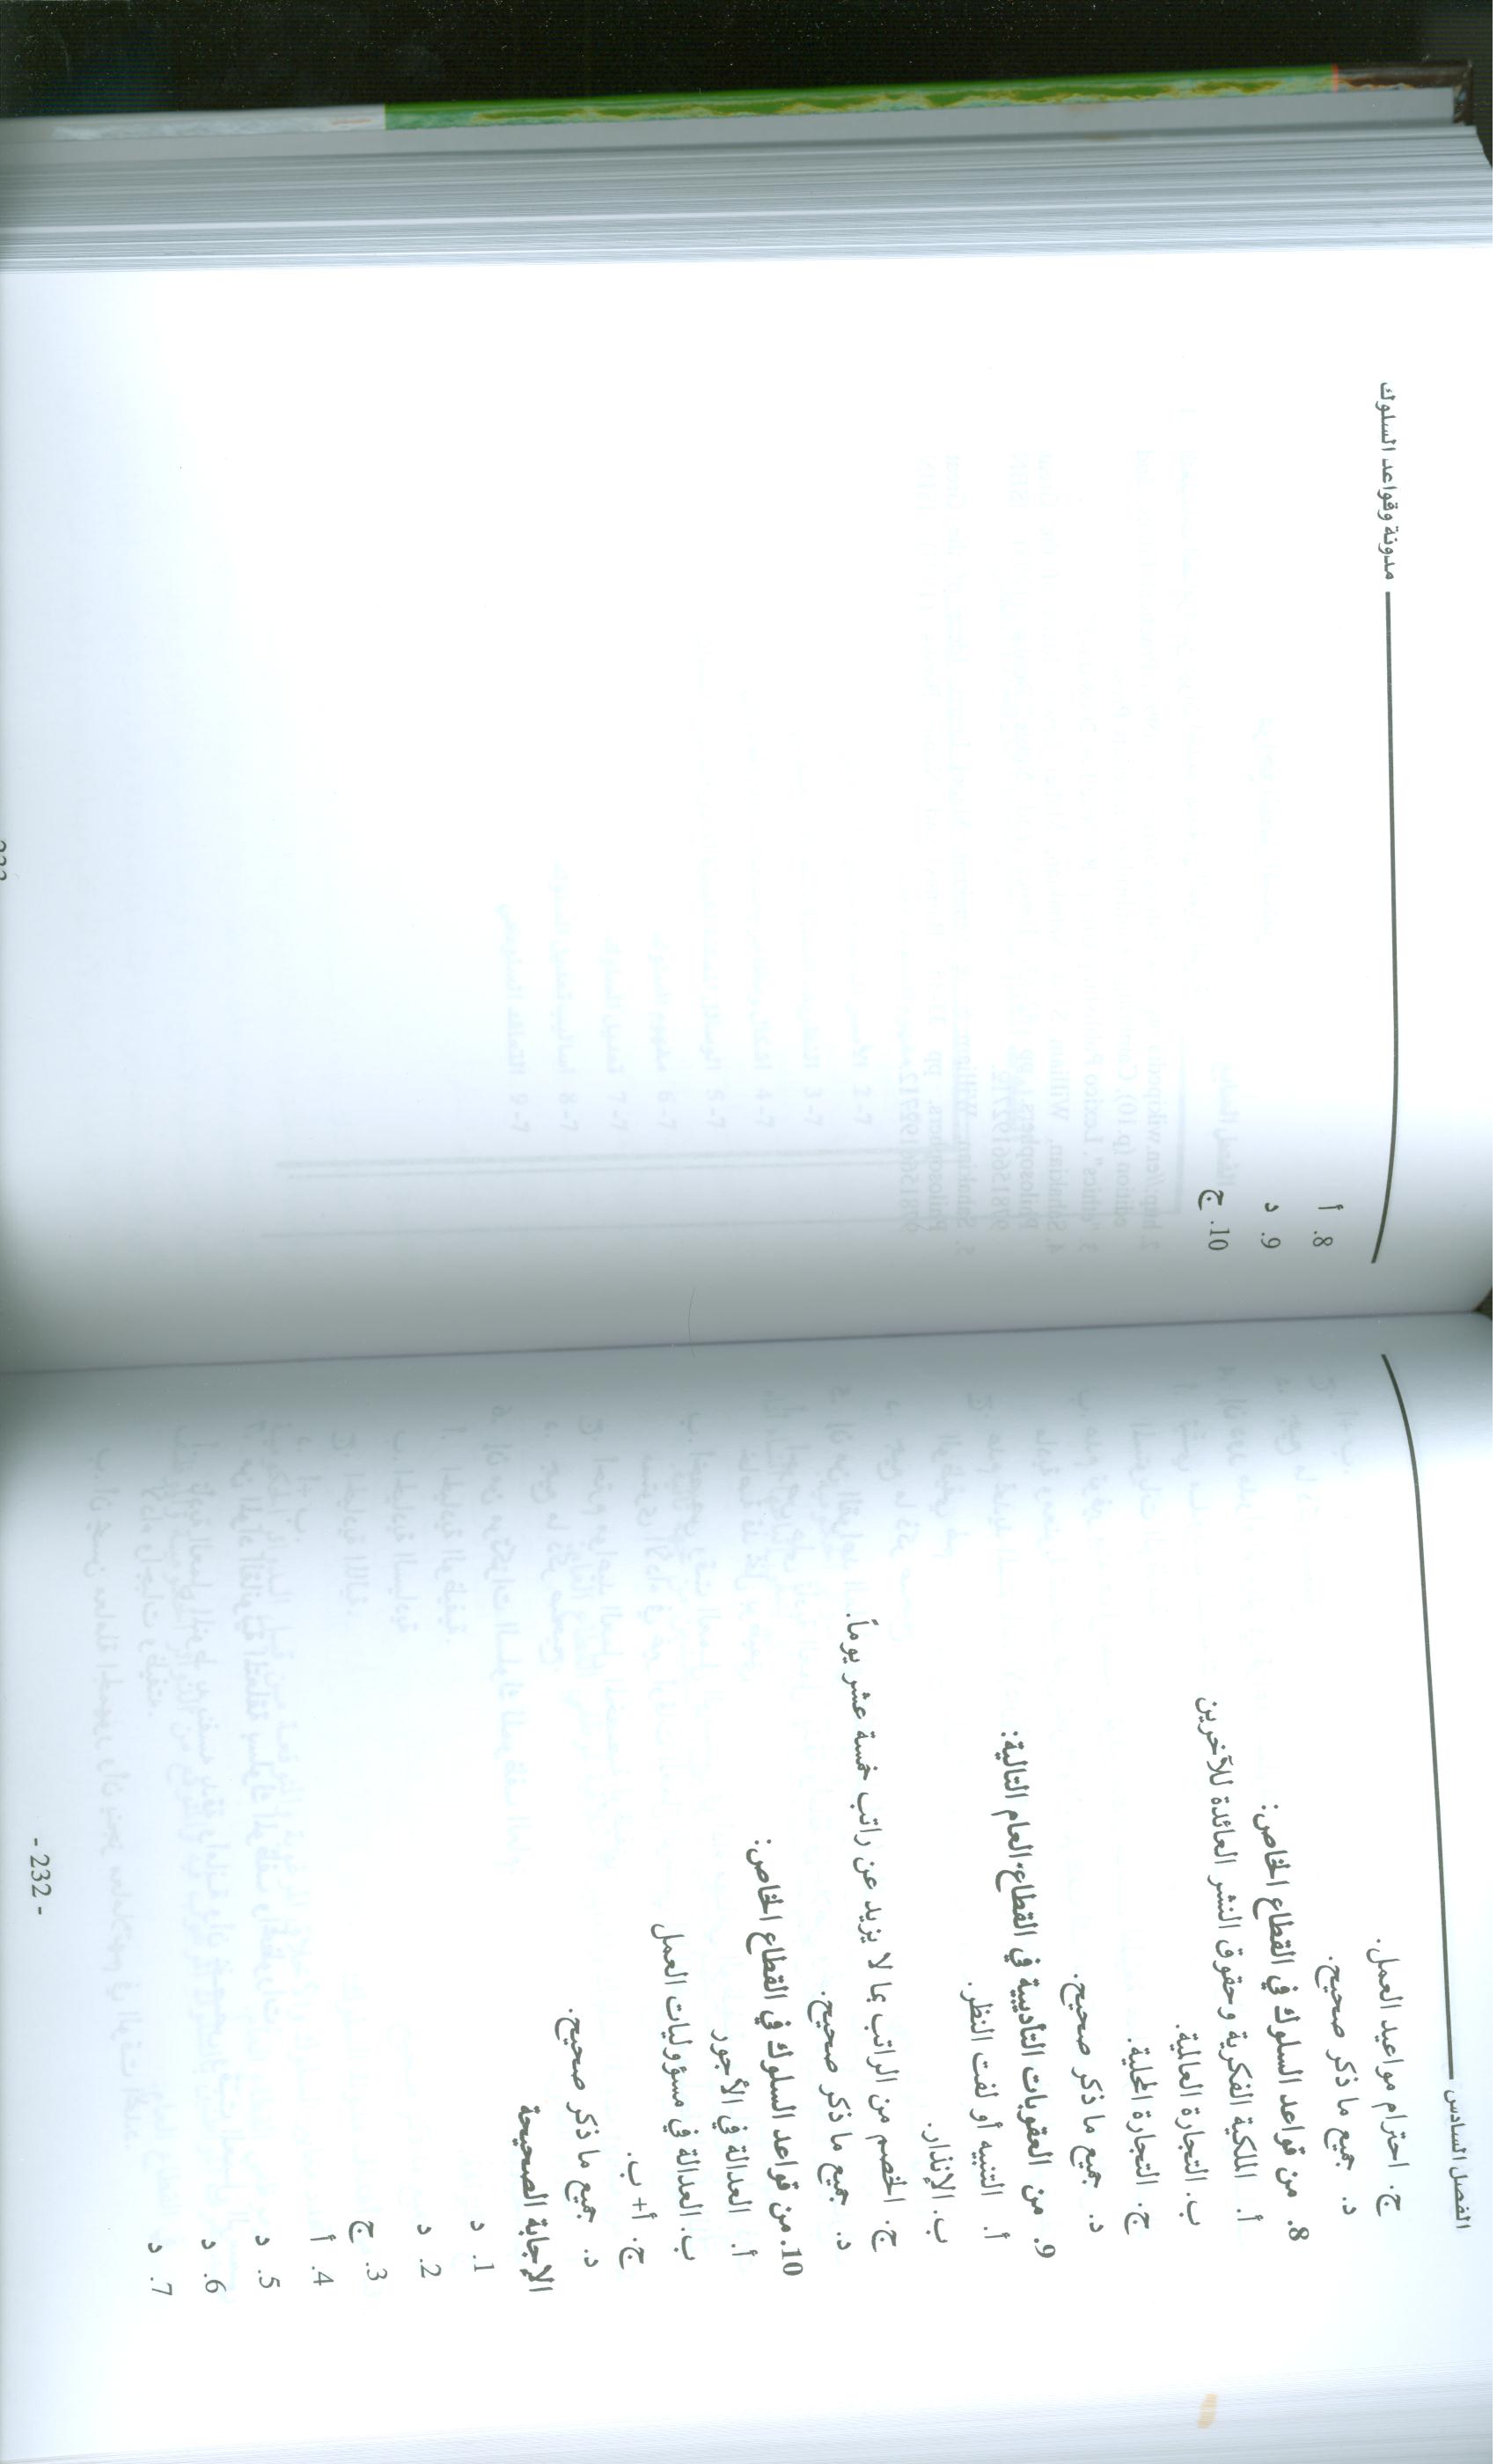 الفصل السادس
ج. احترام مواعيد العمل.
د. جميع ما ذكر صحيح.
8. من قواعد السلوك في القطاع الخاص:
أ. الملكية الفكرية وحقوق النشر العائدة للآخرين
ب. التجارة العالمية.
ج. التجارة المحلية.
د. جميع ما ذكر صحيح.
9. من العقوبات التأديبية في القطاع العام التالية:
أ. التنبيه أو لفت النظر.
ب. الإنذار.
ج. الخصم من الراتب بما لا يزيد عن راتب خمسة عشر يوماً.
د. جميع ما ذكر صحيح.
10. من قواعد السلوك في القطاع الخاص:
أ. العدالة في الأجور
ب. العدالة في مسؤوليات العمل
ج. أ+ ب.
د. جميع ما ذكر صحيح.
الإجابة الصحيحة
1. د
2. د
3. ج
4. أ
5. د
6. د
7. د
- 232 -
مدونة وقواعد السلوك
8. أ
9. د
10. ج